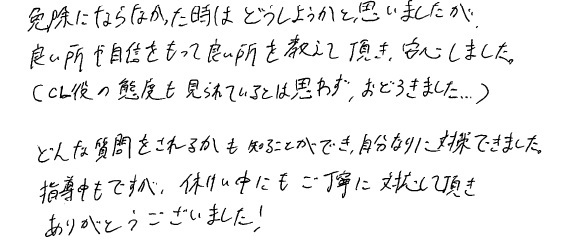 免除にならなかった時はどうしようかと、思いましたが、
良い所や自信をもって良い所を教えて頂き、安心しました。
(CL役の態度も見られているとは思わず、おどろきました…)
どんな質問をされるかも知ることができ、自分なりに対策できました。
指導中もですが、休けい中にもご丁寧に対応して頂き
ありがとうございました!